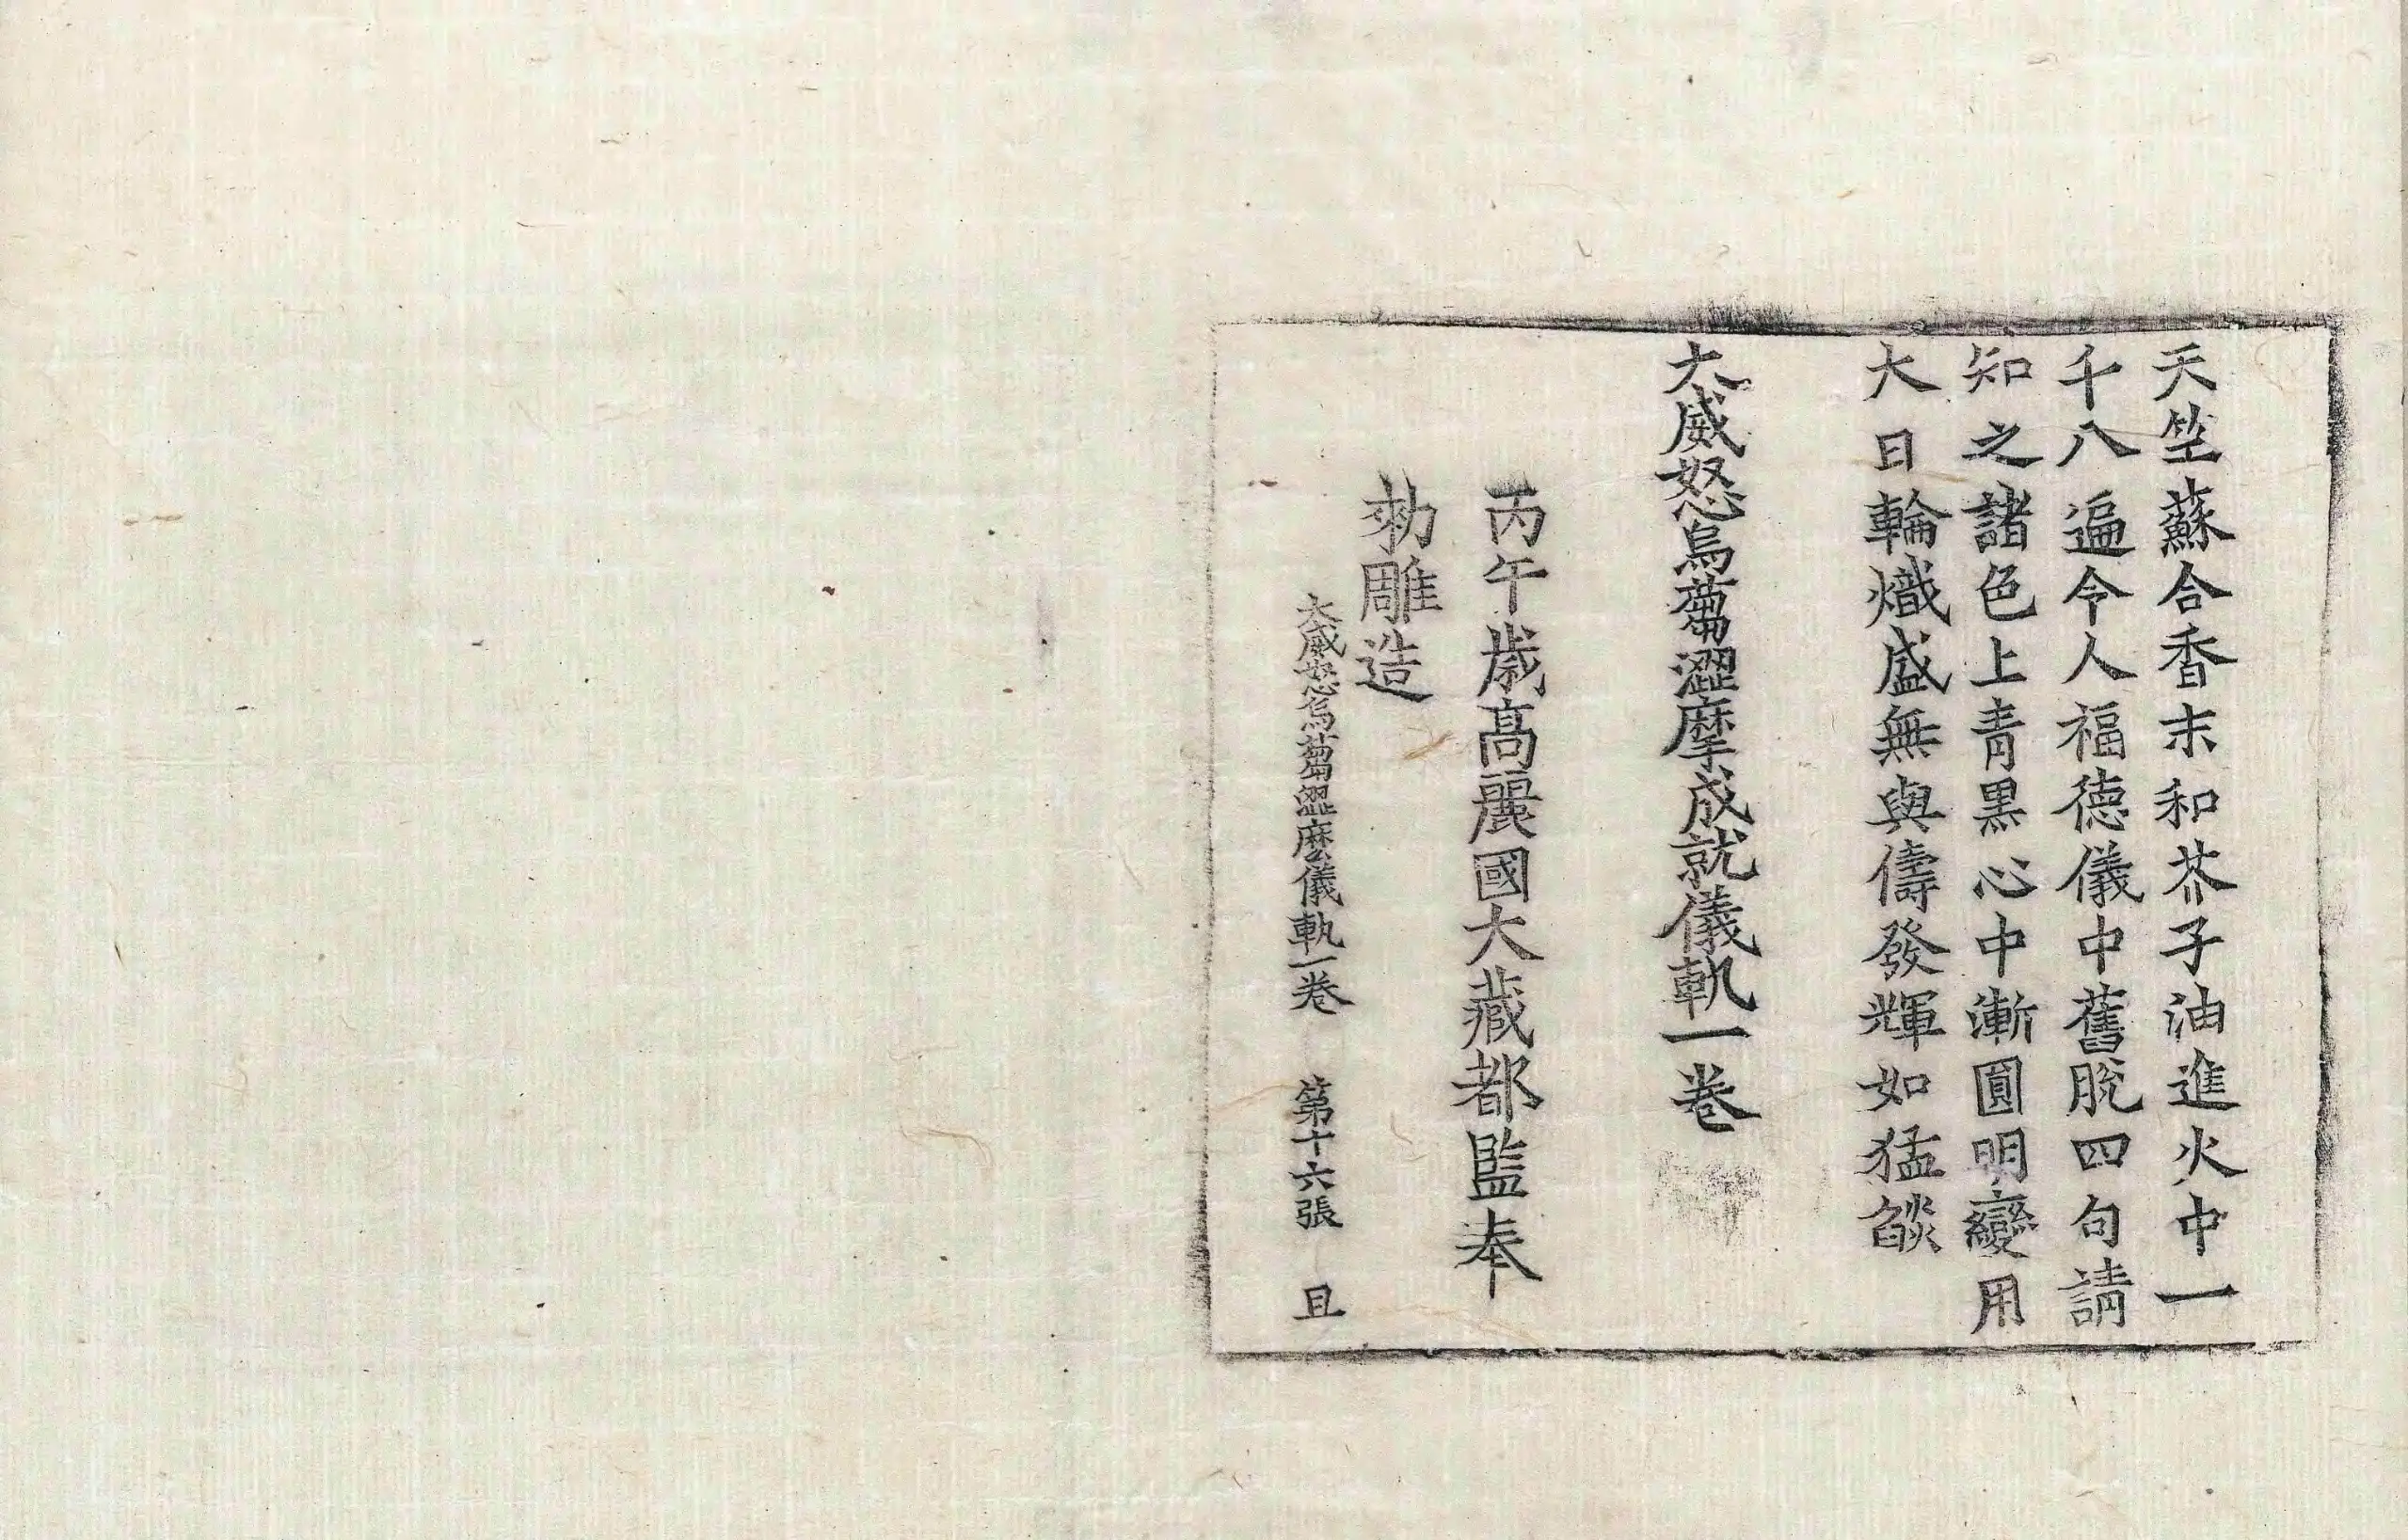 天笁蘇合香末和芥子油進火中一
千八遍令人福德儀中舊脫四句請
知之諸色上青黑心中漸圓明變用
大日輪熾盛無與儔發輝如猛燄
大威怒烏蒭澀摩成就儀軌一卷
丙午歲高麗國大藏都監奉
勑雕造
大威怒烏蒭澀麽儀軌一卷 第十六張 且